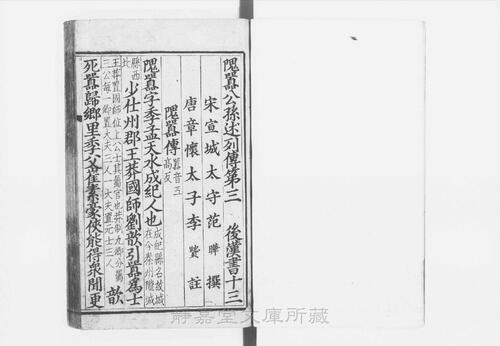 隗囂公孫述列傳第三 後漢書十三
宋宣城太守范曄撰
唐章懷太子李賢註
隗囂傳 囂音五高反
隗囂字季孟天水成紀人也 成紀縣名故城在今秦州隴城
縣西北 少仕州郡王莽國師劉歆引囂為士
王莽置國師位上公士其屬官也莽制九卿分屬三公每一卿置大夫三人一大夫置元士三人 歆
死囂歸鄉里季父崔素豪俠能得衆聞更
靜嘉堂文庫所藏